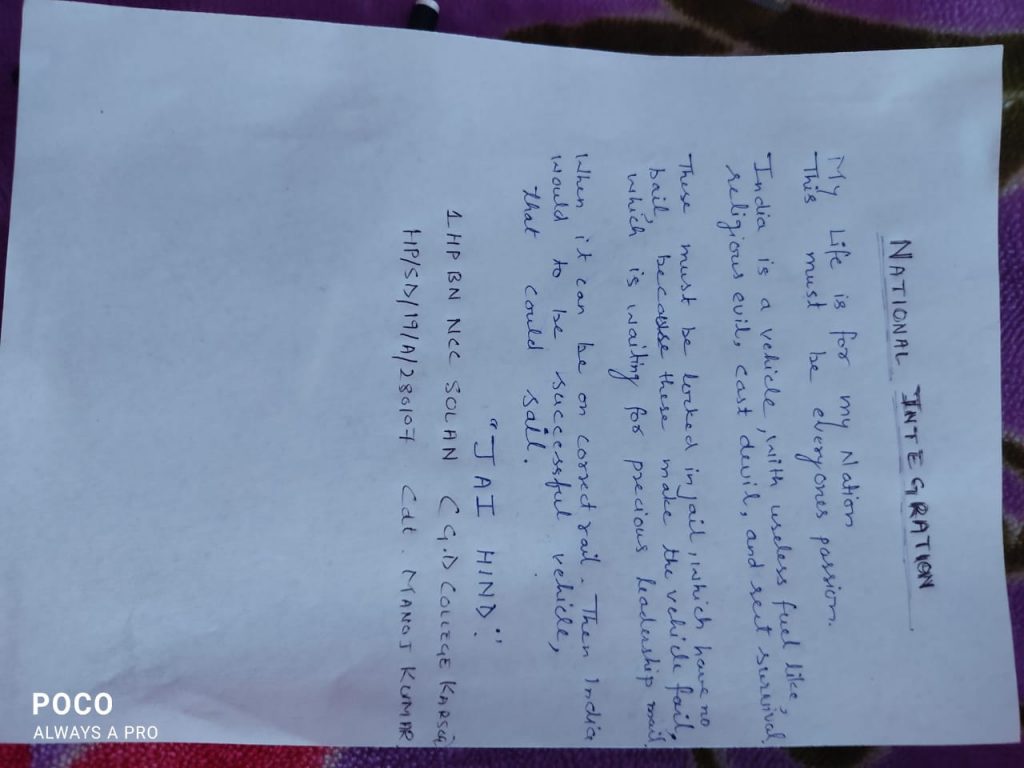 NATIONAL INTEGRATION
My Life is for my Nation
This must be everyones passion.
India is a vehicle, with useless fuel like,
religious evil, cast devil, and sect survival.
These must be locked in jail, which have no
bail becosse these make the vehicle fail,
which is waiting for precious leadership mail
When it can be on correct rail. Then India
would to be successful vehicle,
that could sail.
"JAI HIND."
1 HP BN NCC SOLAN C G.D COLLEGE
HP/SD/19/A/280107 Cdt. MANOJ KUMAR
POCO
ALWAYS A PRO